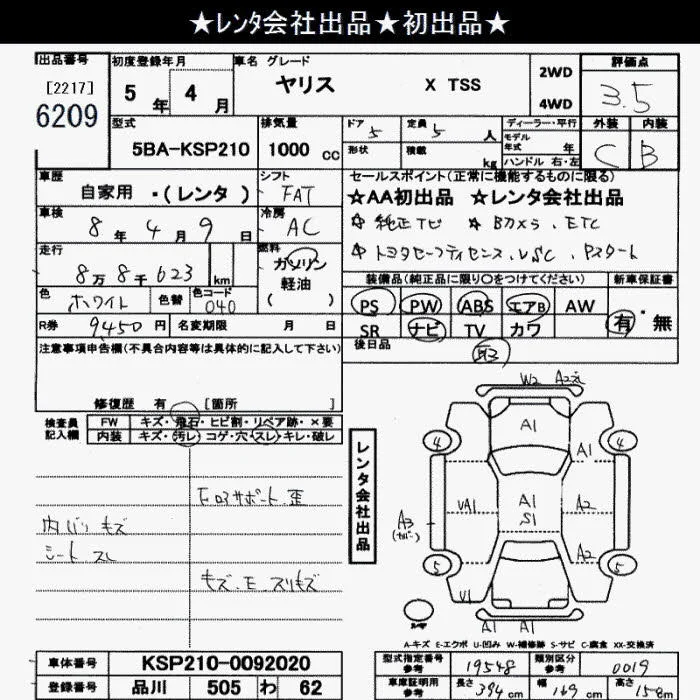 ★レンタ会社出品★初出品★
出品番号
[2217]
6209
初度登録年月
5 年 4 月
車名 グレード
ヤリス X TSS
2WD
4WD
評価点
3.5
外装 内装
C B
型式
5BA-KSP210
排気量
1000 cc
ドア 5
定員 5 人
形状
積載 kg
ディーラー・平行
モデル年式 年
ハンドル 右・左
車歴
自家用 ・(レンタ)
シフト
FAT
車検
8 年 4 月 9 日
冷房
AC
走行
8万8千623 km
燃料
ガソリン
軽油
( )
色
ホワイト
色替
色コード
040
R券 9450 円
名変期限 月 日
セールスポイント(正常に機能するものに限る)
☆AA初出品 ☆レンタ会社出品
☆ 純正ナビ ☆ Bカメラ、ETC
☆ トヨタセーフティセンス、VSC、Pスタート
装備品(純正品に限り○をつけてください)
新車保証書
PS PW ABS エアB AW
有・無
SR ナビ TV カワ
後日品
注意事項申告欄(不具合内容等は具体的に記入して下さい)
修復歴 有 [箇所 ]
検査員
記入欄
FW キズ・飛石・ヒビ割・リペア跡・×要
内装 キズ・汚レ・コゲ・穴・スレ・キレ・破レ
コアサポート 歪
内バリ キズ
シート スレ
キズ・E・スリキズ
レンタ会社出品
W2 A2
A1
4 4
A1
VA1
A1
S1
A2
A3
A2
5 5
V1
A1 A1
A-キズ E-エクボ U-凹み W-補修跡 S-サビ C-腐食 XX-交換済
車体番号 KSP210-0092020
登録番号 品川 505 わ 62
型式指定番号
参考
19548
類別区分
参考
0019
車庫証明用
参考
長さ 394 cm
幅 169 cm
高さ 158 cm